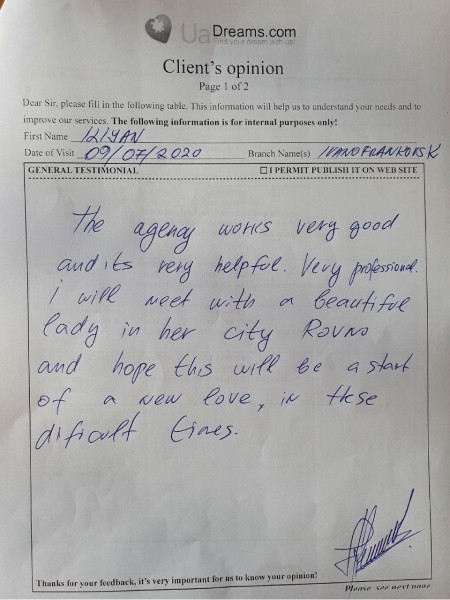 UaDreams.com
Find your dream with us!
Client's opinion
Page 1 of 2
Dear Sir, please fill in the following table. This information will help us to understand your needs and to
improve our services. The following information is for internal purposes only!
First Name ILIYAN
Date of Visit 09/07/2020 Branch Name(s) IVANOFRANKOVSK
GENERAL TESTIMONIAL ☐ I PERMIT PUBLISH IT ON WEB SITE
The agency works very good
and its very helpful. Very professional.
i will meet with a beautiful
lady in her city Rovno
and hope this will be a start
of a new love, in these
dificult times.
Thanks for your feedback, it's very important for us to know your opinion!
Please see next page